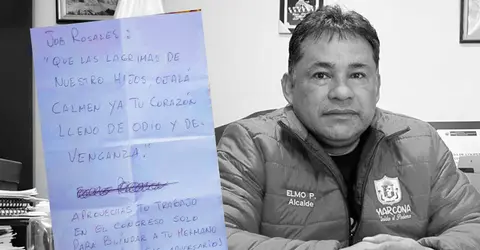 JOB ROSALES:
"QUE LAS LAGRIMAS DE
NUESTRO HIJOS, OJALÁ
CALMEN YA TU CORAZÓN
LLENO DE ODIO Y DE
VENGANZA."
APROVECHAS TU TRABAJO
EN EL CONGRESO SOLO
PARA BLINDAR A TU HERMANO
ELMO P.
Alcalde
MARCONA